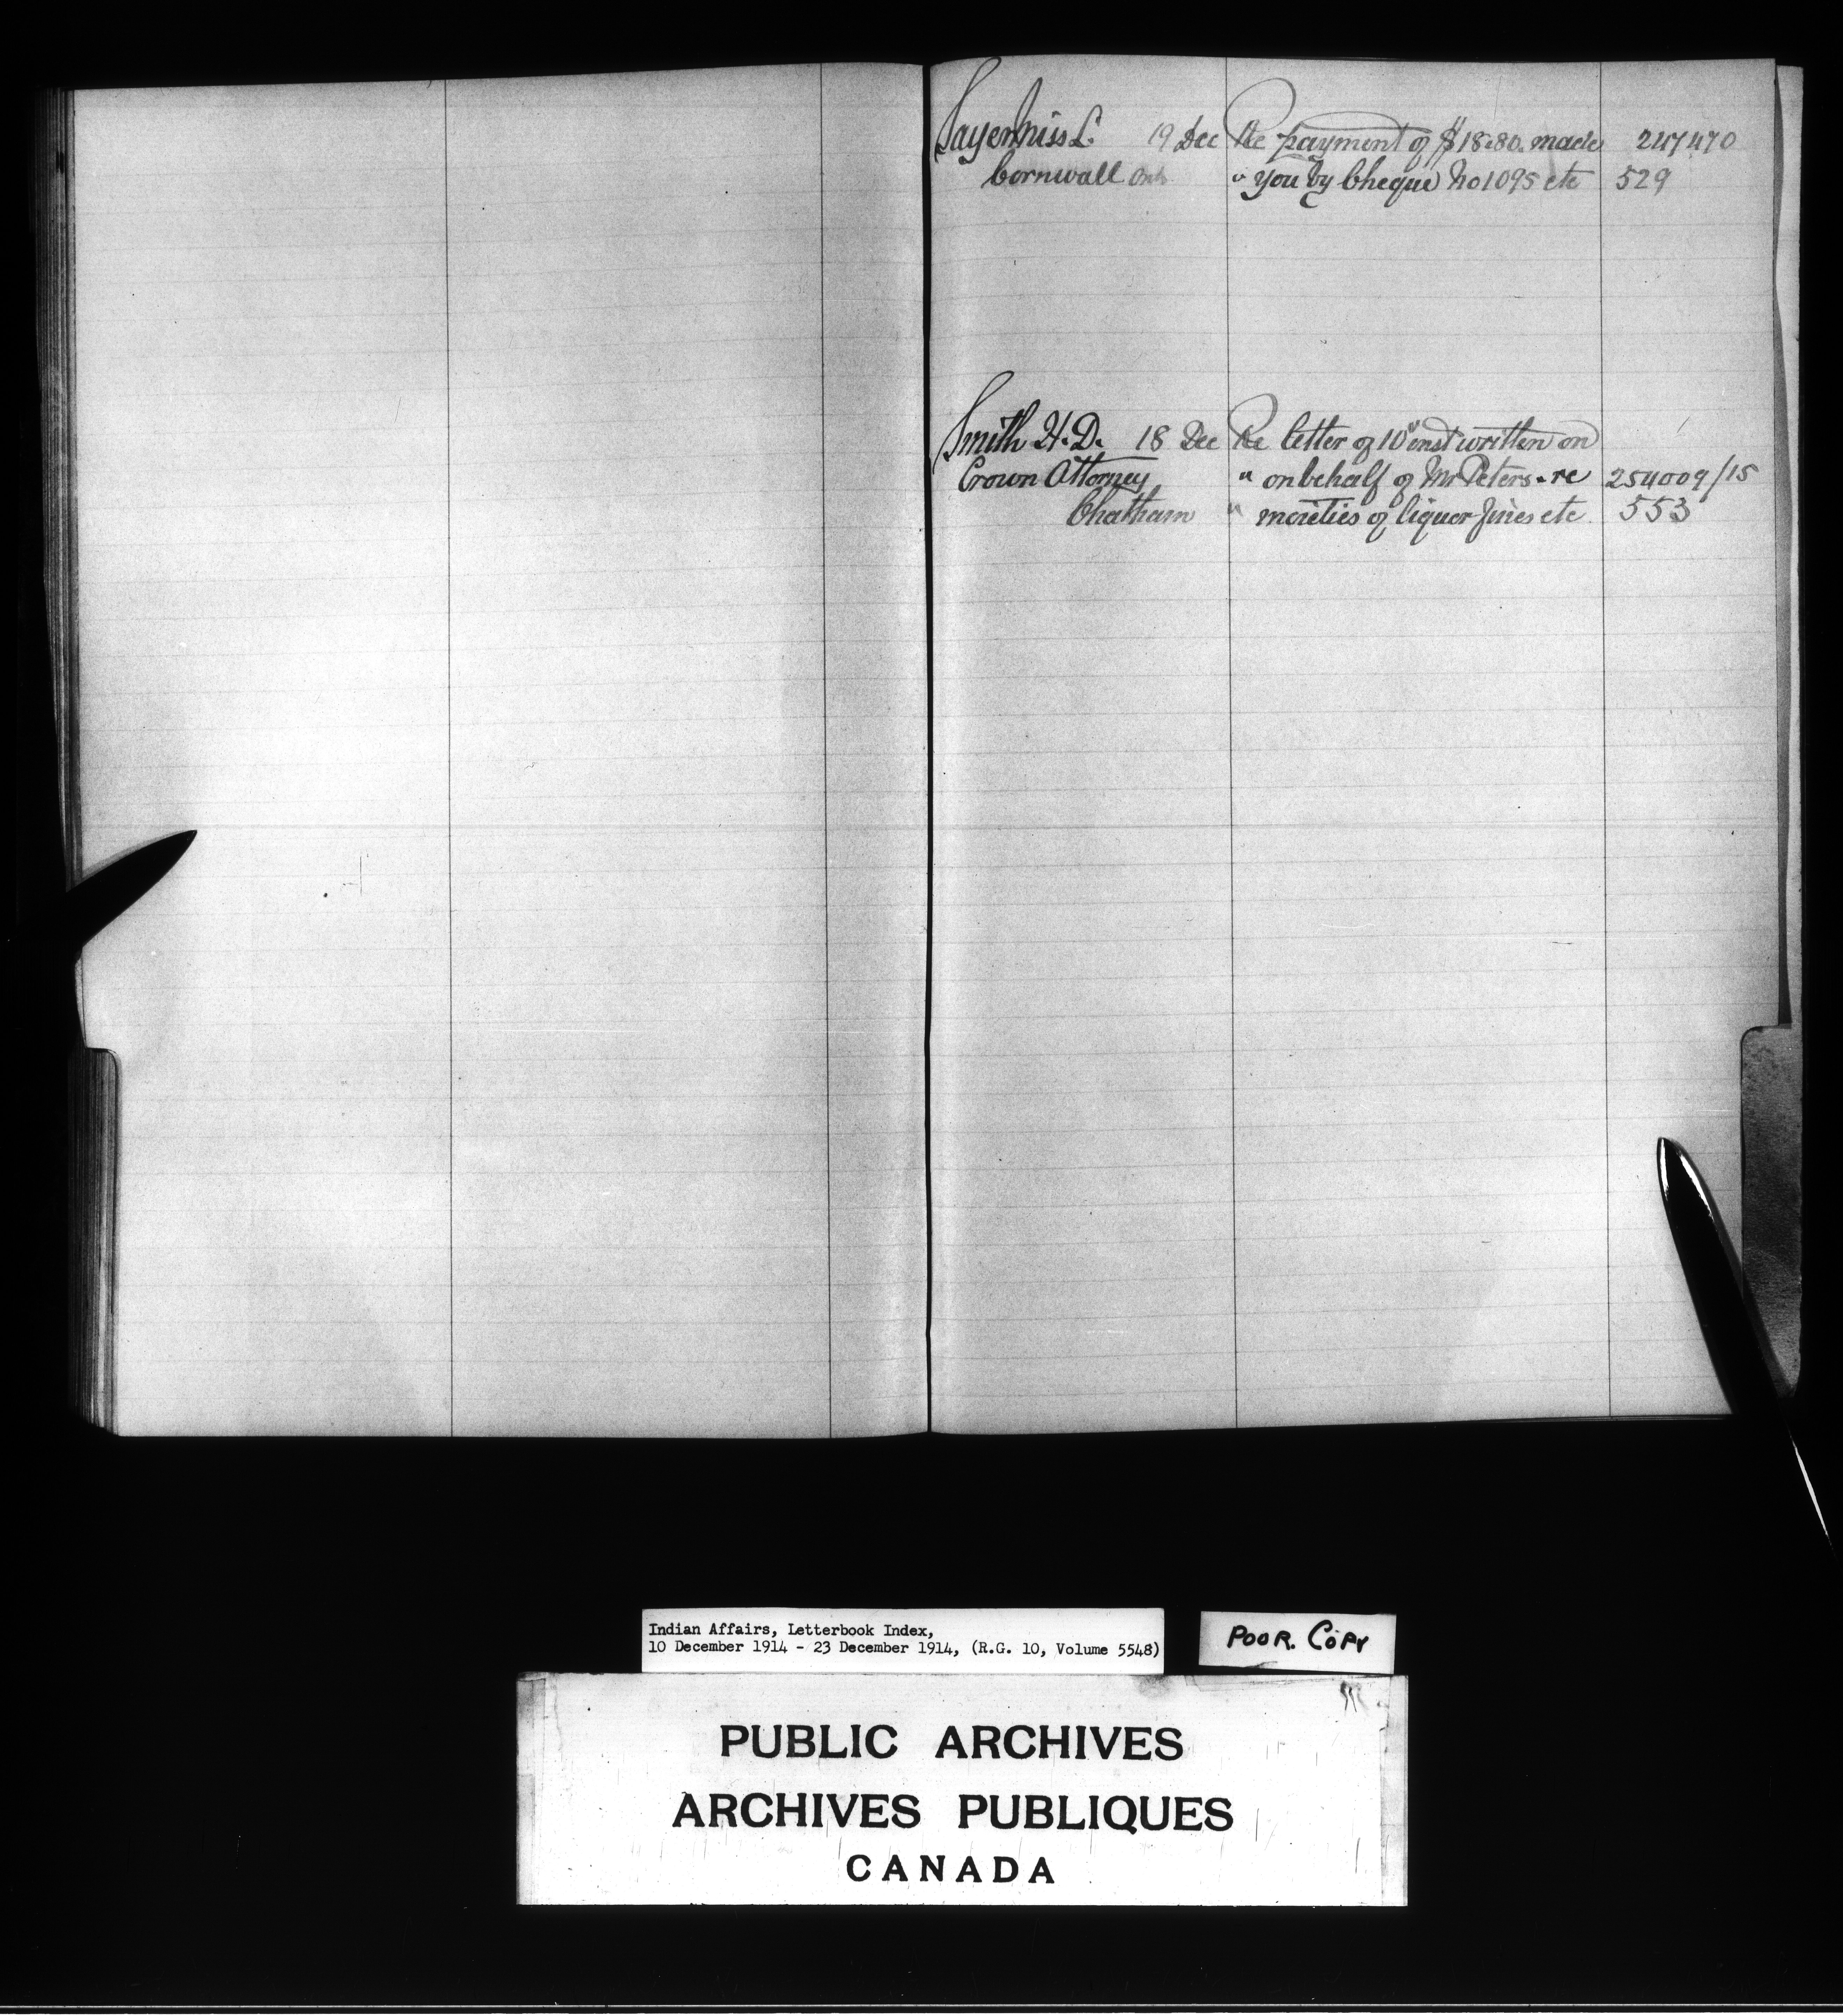 Sayer Miss L. 19 Dec Re payment of $18.80. made 247470
Cornwall Ont " you by Cheque No 1095 etc 529
Smith H. D. 18 Dec Re letter of 10" inst written on
Crown Attorney " on behalf of Mr Peters - re 254009/15
Chatham " moieties of liquor fines etc 553
Indian Affairs, Letterbook Index,
10 December 1914 - 23 December 1914, (R.G. 10, Volume 5548)
POOR. COPY
PUBLIC ARCHIVES
ARCHIVES PUBLIQUES
CANADA